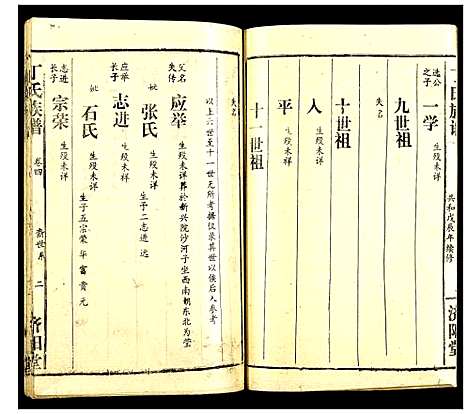 丁氏族谱
共和戊辰年续修
一
济阳堂
逸公
之子
一学
生殁未详
九世祖
失名
十世祖
人
生殁未详
平
生殁未详
十一世祖
失名
以上六世至十一世无所考据仅录其世以俟后人参考
父名
失传
应举
生殁未详葬於新兴院沙河子坐西南朝东北为茔
妣
张氏
生殁未详
生子二志进 远
应举
长子
志进
生殁未详
妣
石氏
生殁未详
生子五宗荣 华 富 贵 元
志进
长子
宗荣
生殁未详
丁氏族谱
卷四
斋世系
二
济阳堂